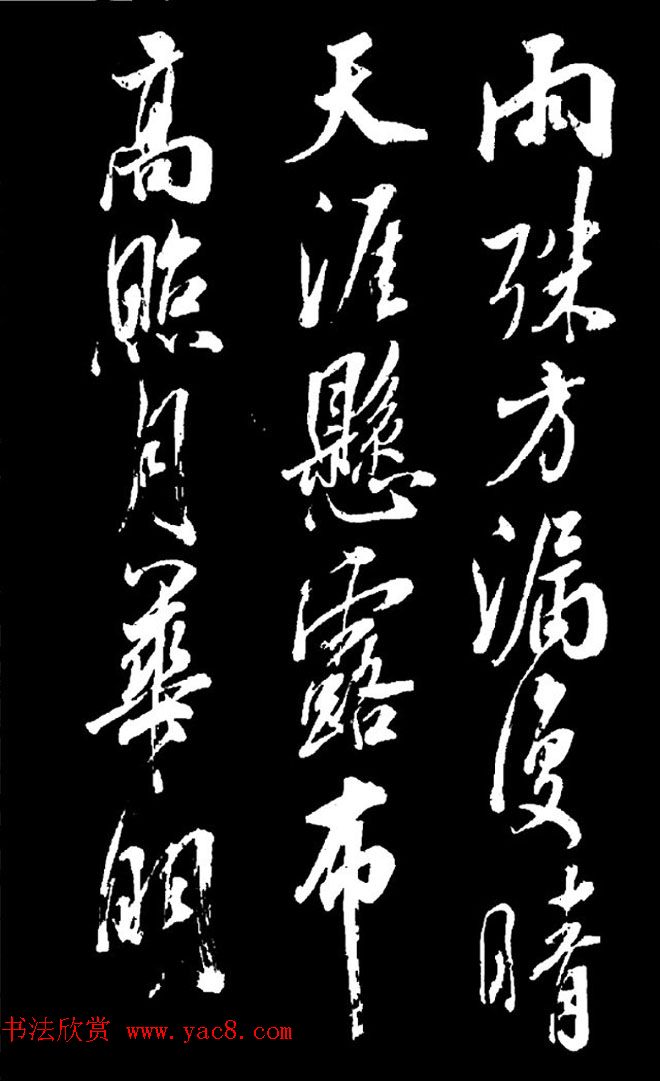 雨殊方漏復晴
天涯懸露布
高照月華明
书法欣赏 www.yac8.com